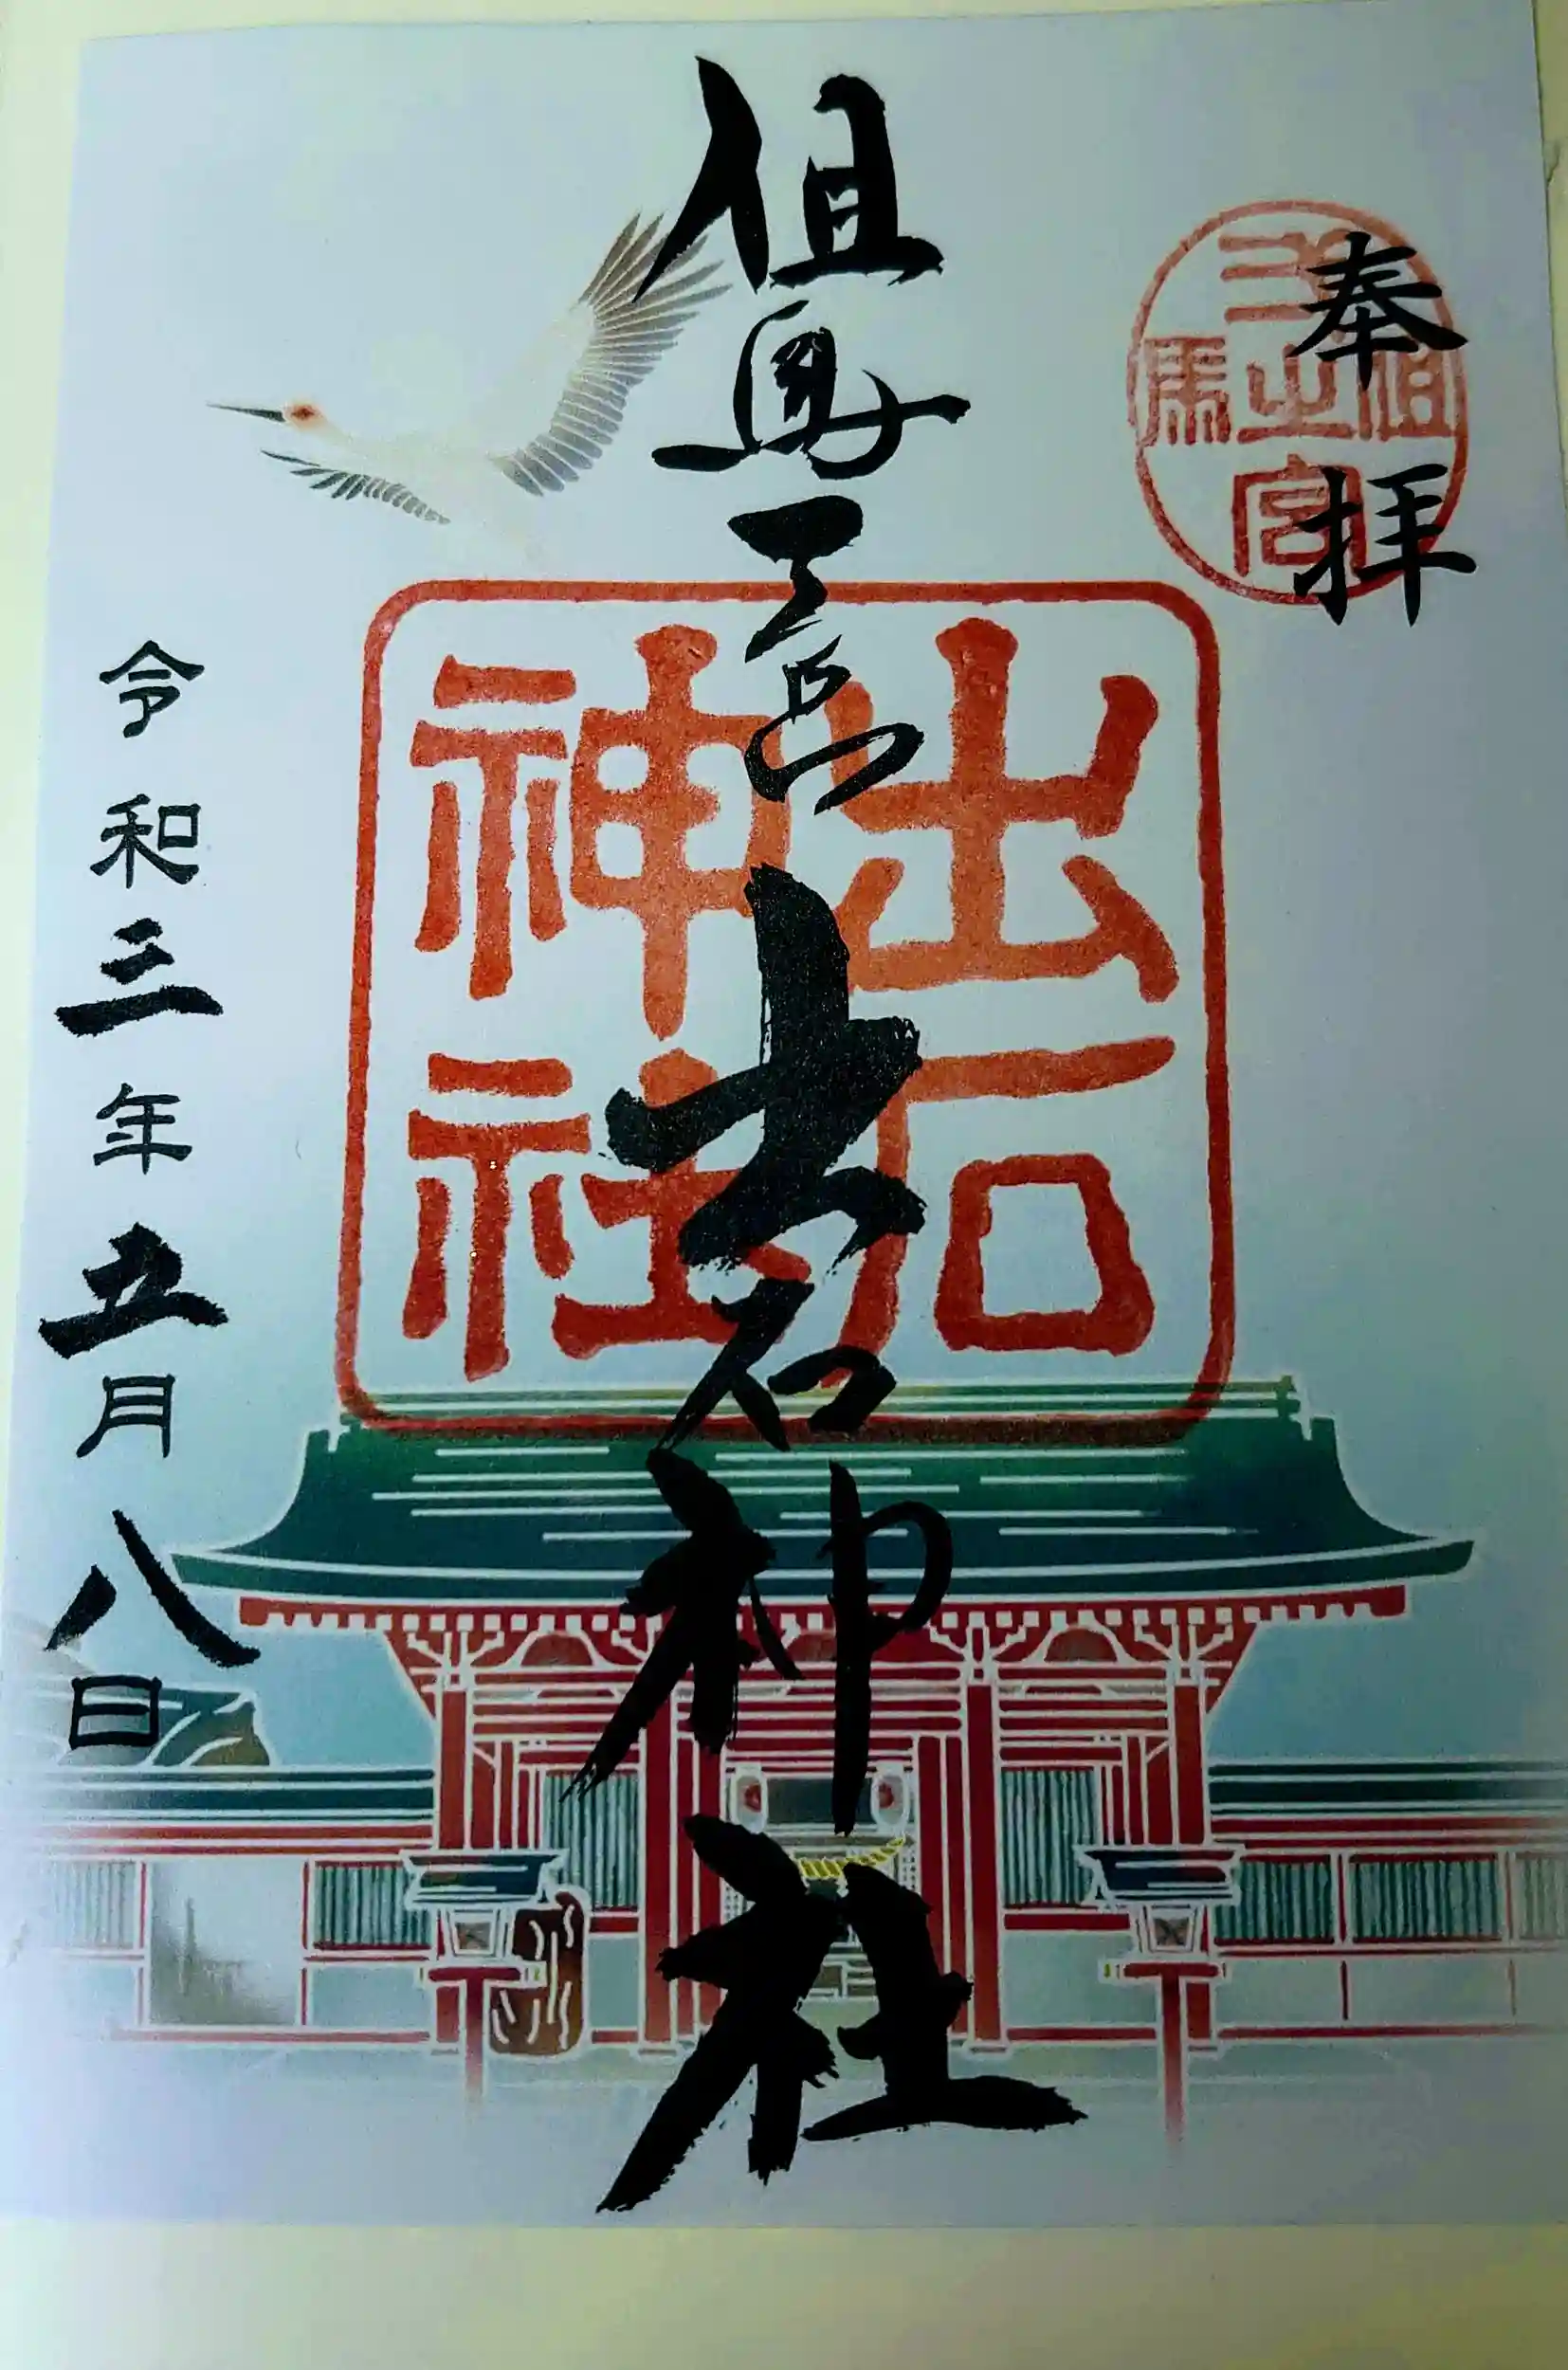 奉拝
但馬
之宮
但馬一宮
出石神社
出石
神社
令和三年五月八日